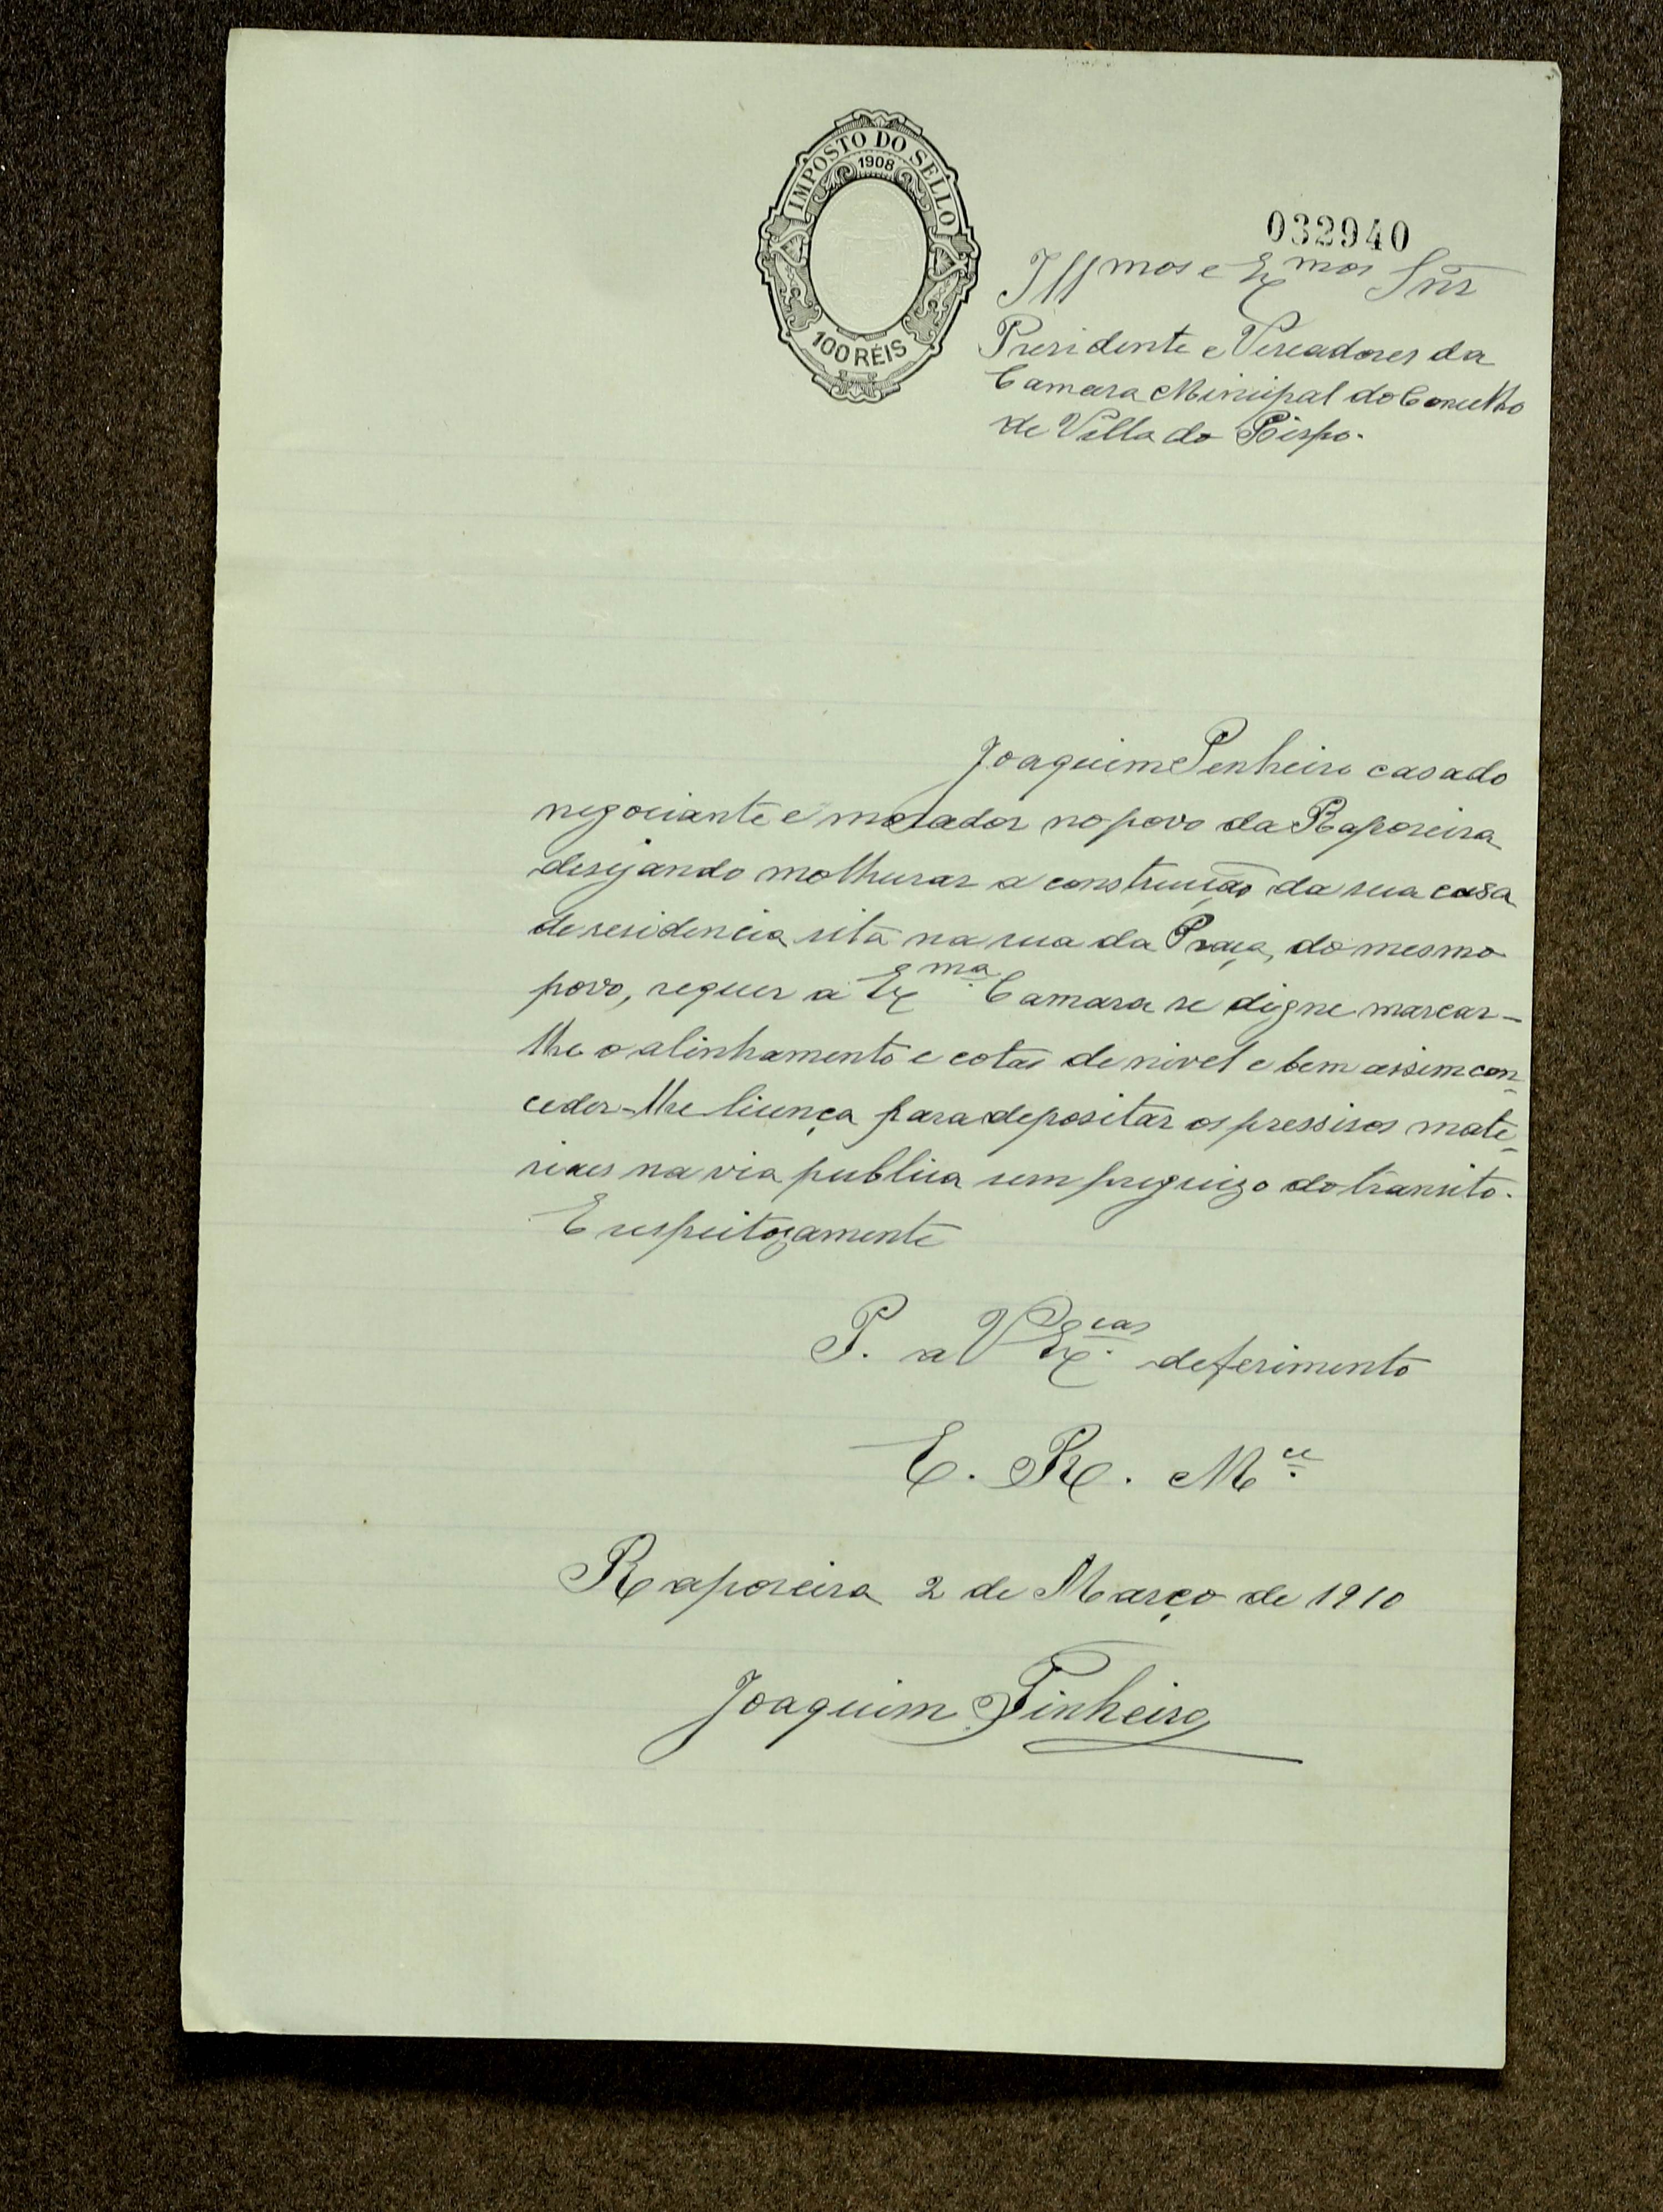 IMPOSTO DO SELLO
1908
100 RÉIS
032940
Illmos e Exmos Snrs
Presidente e Vereadores da
Camara Minicipal do Concelho
de Villa do Bispo.
Joaquim Penheiro casado
negociante e morador no povo da Raposeira
desejando molhurar a construição da sua casa
de residencia sita na rua da Praça, do mesmo
povo, requer a Exma. Camara se digne marcar-
lhe o alinhamento e cotas de nivel e bem assim con-
ceder-lhe licença para depositar os pressisos mate-
riaes na via publica sem preguizo do transito.
E respeitozamente
P. a V Excias. deferimento
E. R. Mce.
Raposeira 2 de Março de 1910
Joaquim Pinheiro